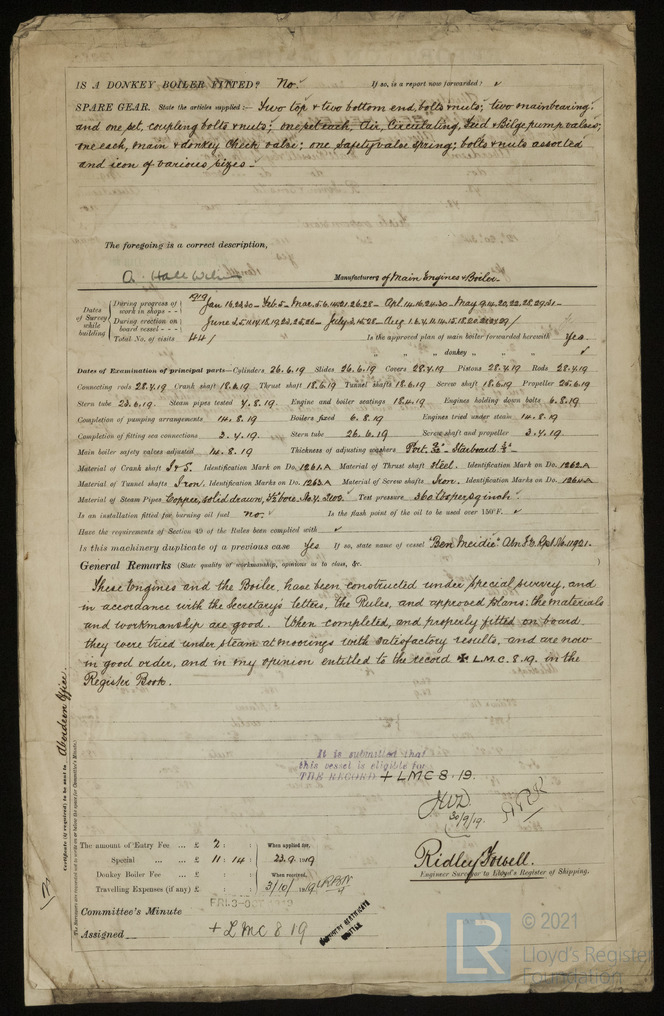 IS A DONKEY BOILER FITTED? No. If so, is a report now forwarded? ✓
SPARE GEAR. State the articles supplied:- Two top & two bottom end, bolts & nuts; two main bearing;
and one set, coupling bolts & nuts; one set each, Air, Circulating, Feed & Bilge pump valves;
one each, main & donkey Check valve; one safety valve spring; bolts & nuts assorted
and iron of various sizes.-
The foregoing is a correct description,
A. Hall
Manufacturers of Main Engines & Boiler.
Dates of Survey while building
During progress of work in shops - - 1919 Jan 16.23.30- Feb. 5- Mar. 5.6.14.21.26.28- Apl. 14.16.24.30- May 9.14.20.22.28.29.31-
During erection on board vessel - - - June 3.5.11.14.18.19.23.25.26- July 3.15.28- Aug 1.6.
Total No. of visits 44/ Is the approved plan of main boiler forwarded herewith Yes.
" " " donkey " " " ✓
Dates of Examination of principal parts—Cylinders 26.6.19 Slides 26.6.19 Covers 28.4.19 Pistons 28.4.19 Rods 28.4.19
Connecting rods 28.4.19 Crank shaft 18.6.19 Thrust shaft 18.6.19 Tunnel shafts 18.6.19 Screw shaft 18.6.19 Propeller 25.6.19
Stern tube 23.6.19 Steam pipes tested 4.8.19. Engine and boiler seatings 18.4.19 Engines holding down bolts 6.8.19
Completion of pumping arrangements 14.8.19 Boilers fixed 6.8.19 Engines tried under steam 14.8.19
Completion of fitting sea connections 3.4.19 Stern tube 26.6.19 Screw shaft and propeller 3.4.19
Main boiler safety valves adjusted 14.8.19 Thickness of adjusting washers Port. Starboard
Material of Crank shaft I & S. Identification Mark on Do. 1261.A Material of Thrust shaft Steel. Identification Mark on Do. 1262.A
Material of Tunnel shafts Iron. Identification Marks on Do. 1263.A Material of Screw shafts Iron. Identification Marks on Do. 1264.A
Material of Steam Pipes Copper, solid drawn, Test pressure 360 lbs per sq inch
Is an installation fitted for burning oil fuel no. ✓ Is the flash point of the oil to be used over 150°F. ✓
Have the requirements of Section 49 of the Rules been complied with ✓
Is this machinery duplicate of a previous case Yes If so, state name of vessel "Ben Meidie" Abn F.E. Rpt No. 11921.
General Remarks (State quality of workmanship, opinions as to class, &c. )
These Engines and the Boiler, have been constructed under special survey, and
in accordance with the Secretary's letters, the Rules, and approved plans: the materials
and workmanship are good. When completed, and properly fitted on board
they were tried under steam at moorings with satisfactory results, and are now
in good order, and in my opinion entitled to the record ✠ L.M.C. 8.19. in the
Register Book.
Certificate (if required) to be sent to Aberdeen Office.
The Surveyors are requested not to write on or below the space for Committee's Minute.
It is submitted that
this vessel is eligible for
THE RECORD + LMC 8.19.
30/9/19.
The amount of Entry Fee ... £ 2 : : When applied for,
Special ... £ 11 : 14 : 23.9.1919
Donkey Boiler Fee ... £ : : When received,
Travelling Expenses (if any) £ : : 3/10/1919
Ridley Towell.
Engineer Surveyor to Lloyd's Register of Shipping.
Committee's Minute FRI. 3-OCT 1919
Assigned + LMC 8 19
MACHINERY CERTIFICATE
WRITTEN
LR
© 2021
Lloyd's Register
Foundation